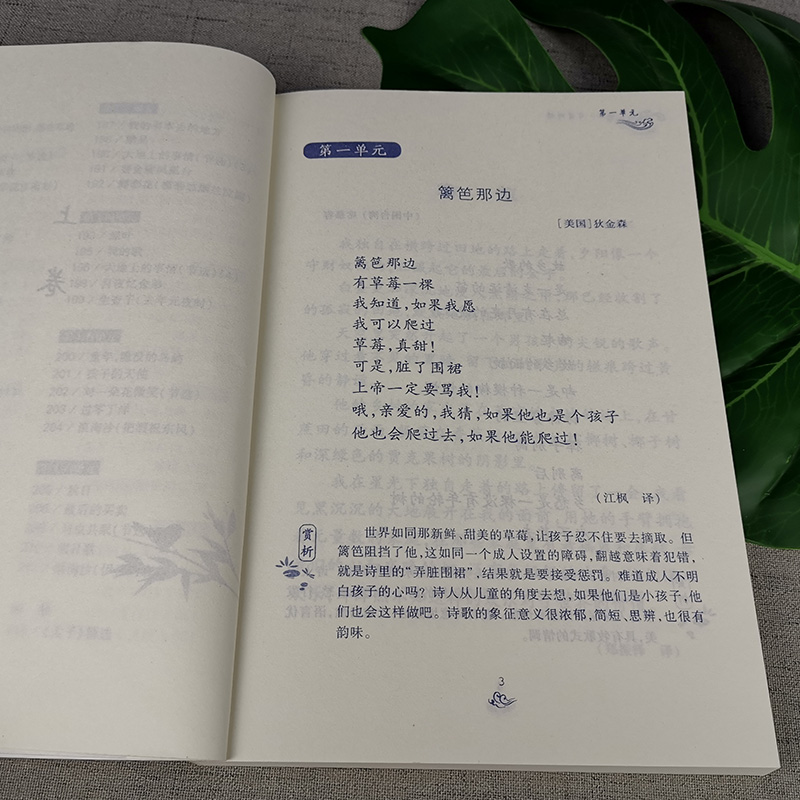 第一单元
第一单元
篱笆那边
[美国]狄金森
篱笆那边
有草莓一棵
我知道,如果我愿
我可以爬过
草莓,真甜!
可是,脏了围裙
上帝一定要骂我!
哦,亲爱的,我猜,如果他也是个孩子
他也会爬过去,如果他能爬过!
(江枫 译)
赏析
世界如同那新鲜、甜美的草莓,让孩子忍不住要去摘取。但
篱笆阻挡了他,这如同一个成人设置的障碍,翻越意味着犯错,
就是诗里的“弄脏围裙”,结果就是要接受惩罚。难道成人不明
白孩子的心吗?诗人从儿童的角度去想,如果他们是小孩子,他
们也会这样做吧。诗歌的象征意义很浓郁,简短、思辨,也很有
韵味。
3